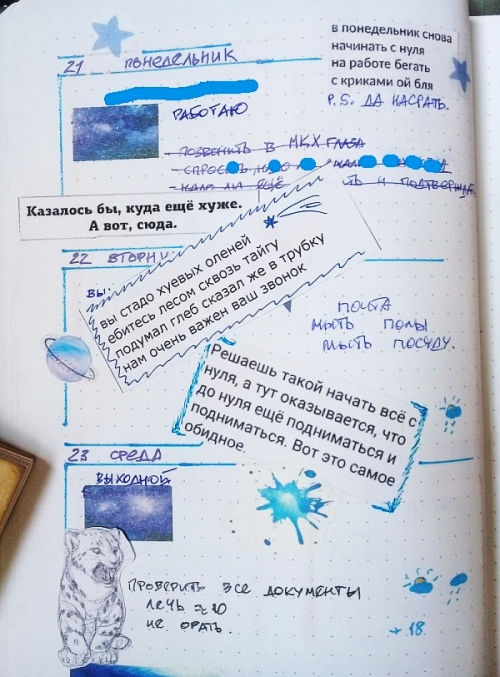 в понедельник снова
начинать с нуля
на работе бегать
с криками ой бля
P.S. ДА НАСРАТЬ.
21 ПОНЕДЕЛЬНИК
РАБОТАЮ
- ПОЗВОНИТЬ В МКХ ГЛАЗА
Казалось бы, куда ещё хуже.
А вот, сюда.
22 ВТОРНИ
вы стадо хуевых оленей
ебитесь лесом сквозь тайгу
подумал глеб сказал же в трубку
нам очень важен ваш звонок
ПОЧТА
МЫТЬ ПОЛЫ
МЫТЬ ПОСУДУ.
Решаешь такой начать всё с
нуля, а тут оказывается, что
до нуля ещё подниматься и
подниматься. Вот это самое
обидное.
23 СРЕДА
ВЫХОДНОЙ
ПРОВЕРИТЬ ВСЕ ДОКУМЕНТЫ
ЛЕЧЬ ≈ 10
НЕ ОРАТЬ.
+18